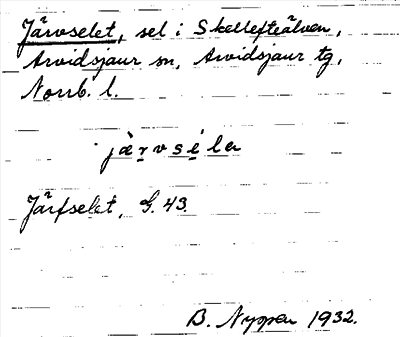 Järvselet, sel i Skellefteälven,
Arvidsjaur sn, Arvidsjaur tg,
Norrb. l.
Järfselet, G. 43.
B. Nyman 1932.